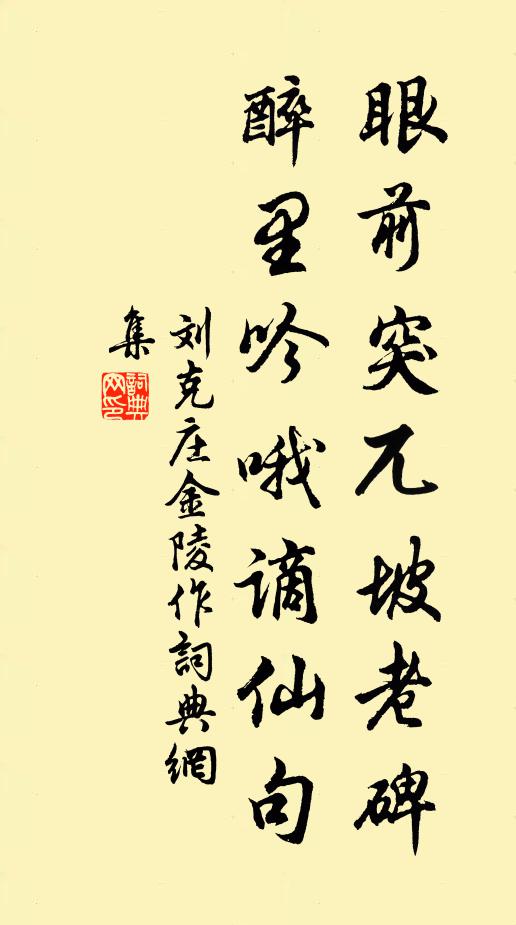 眼前突兀坡老碑
醉里吟哦謫仙句
刘克庄金陵作詞典網
集
詞典网印